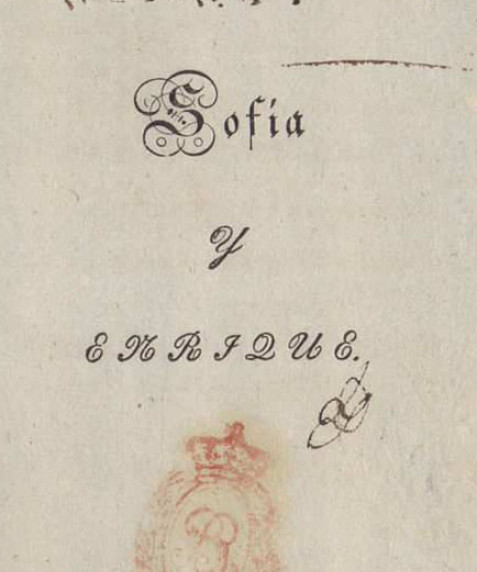 Sofía
Y
ENRIQUE.